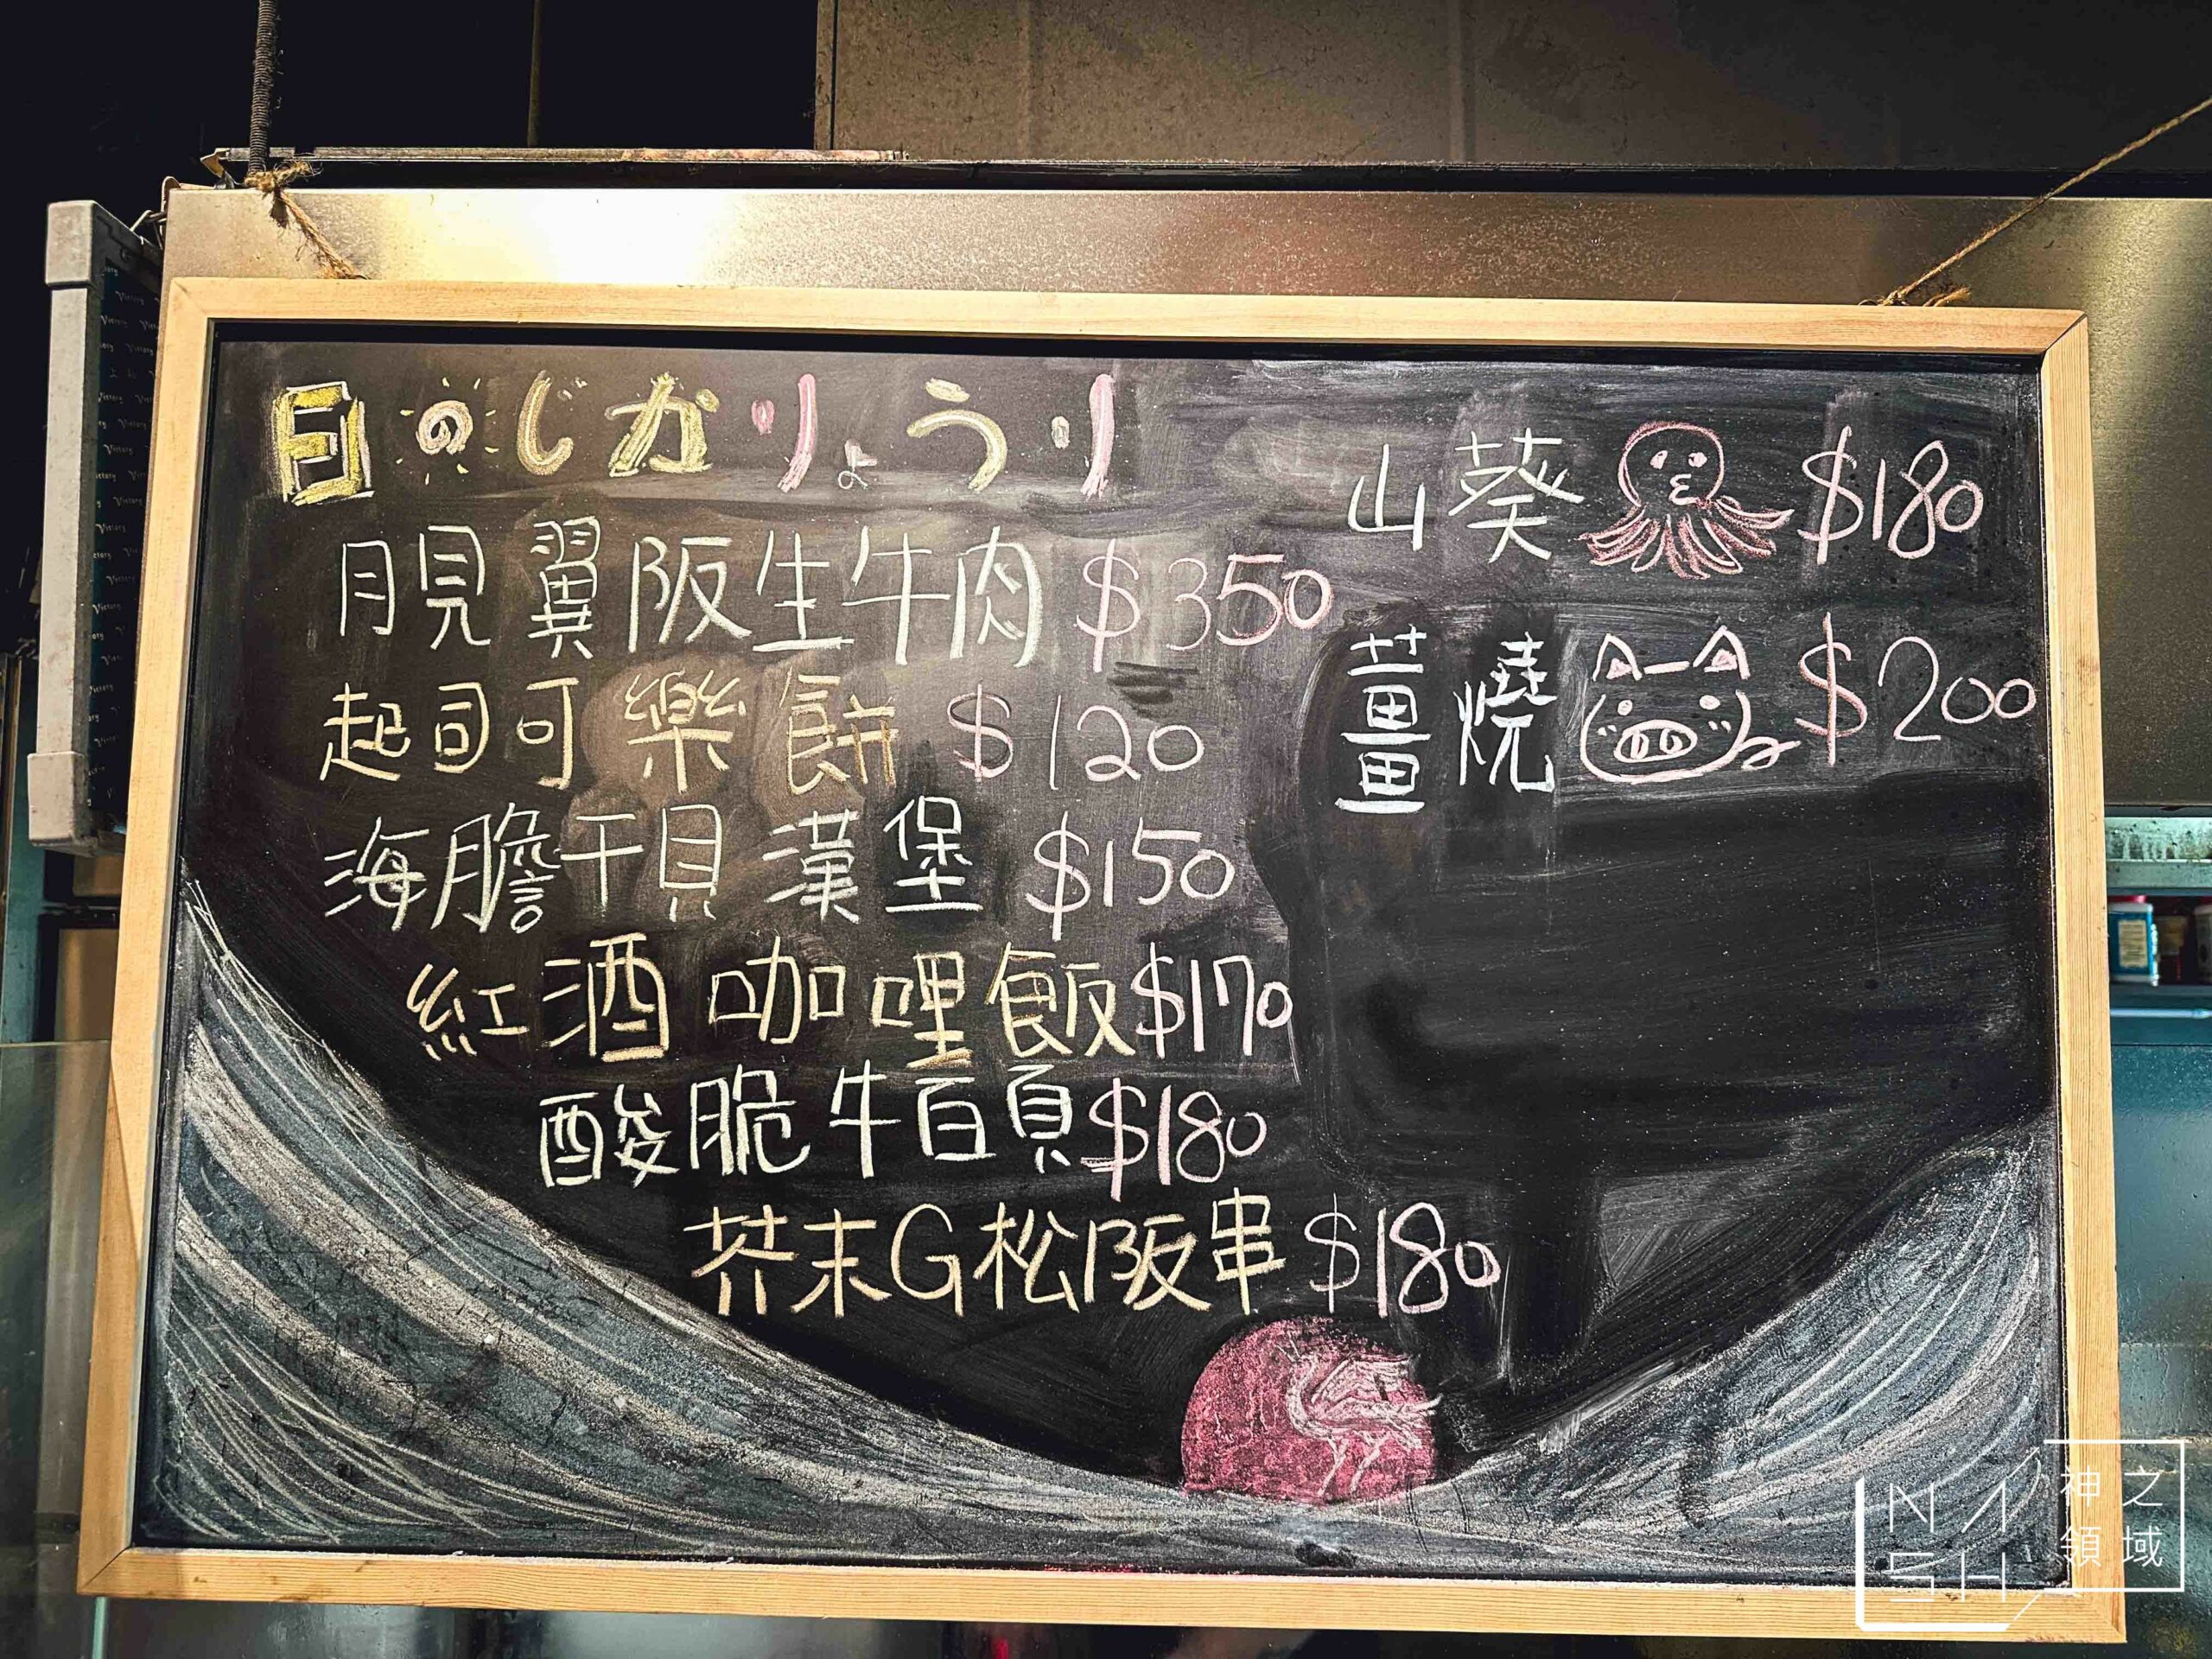 日のじかりょうり
月見翼阪生牛肉 $350
起司可樂餅 $120
海膽干貝漢堡 $150
紅酒咖哩飯 $170
酸脆牛百頁 $180
芥末G松阪串 $180
山葵 $180
薑燒 $200
NASH
神之
領域